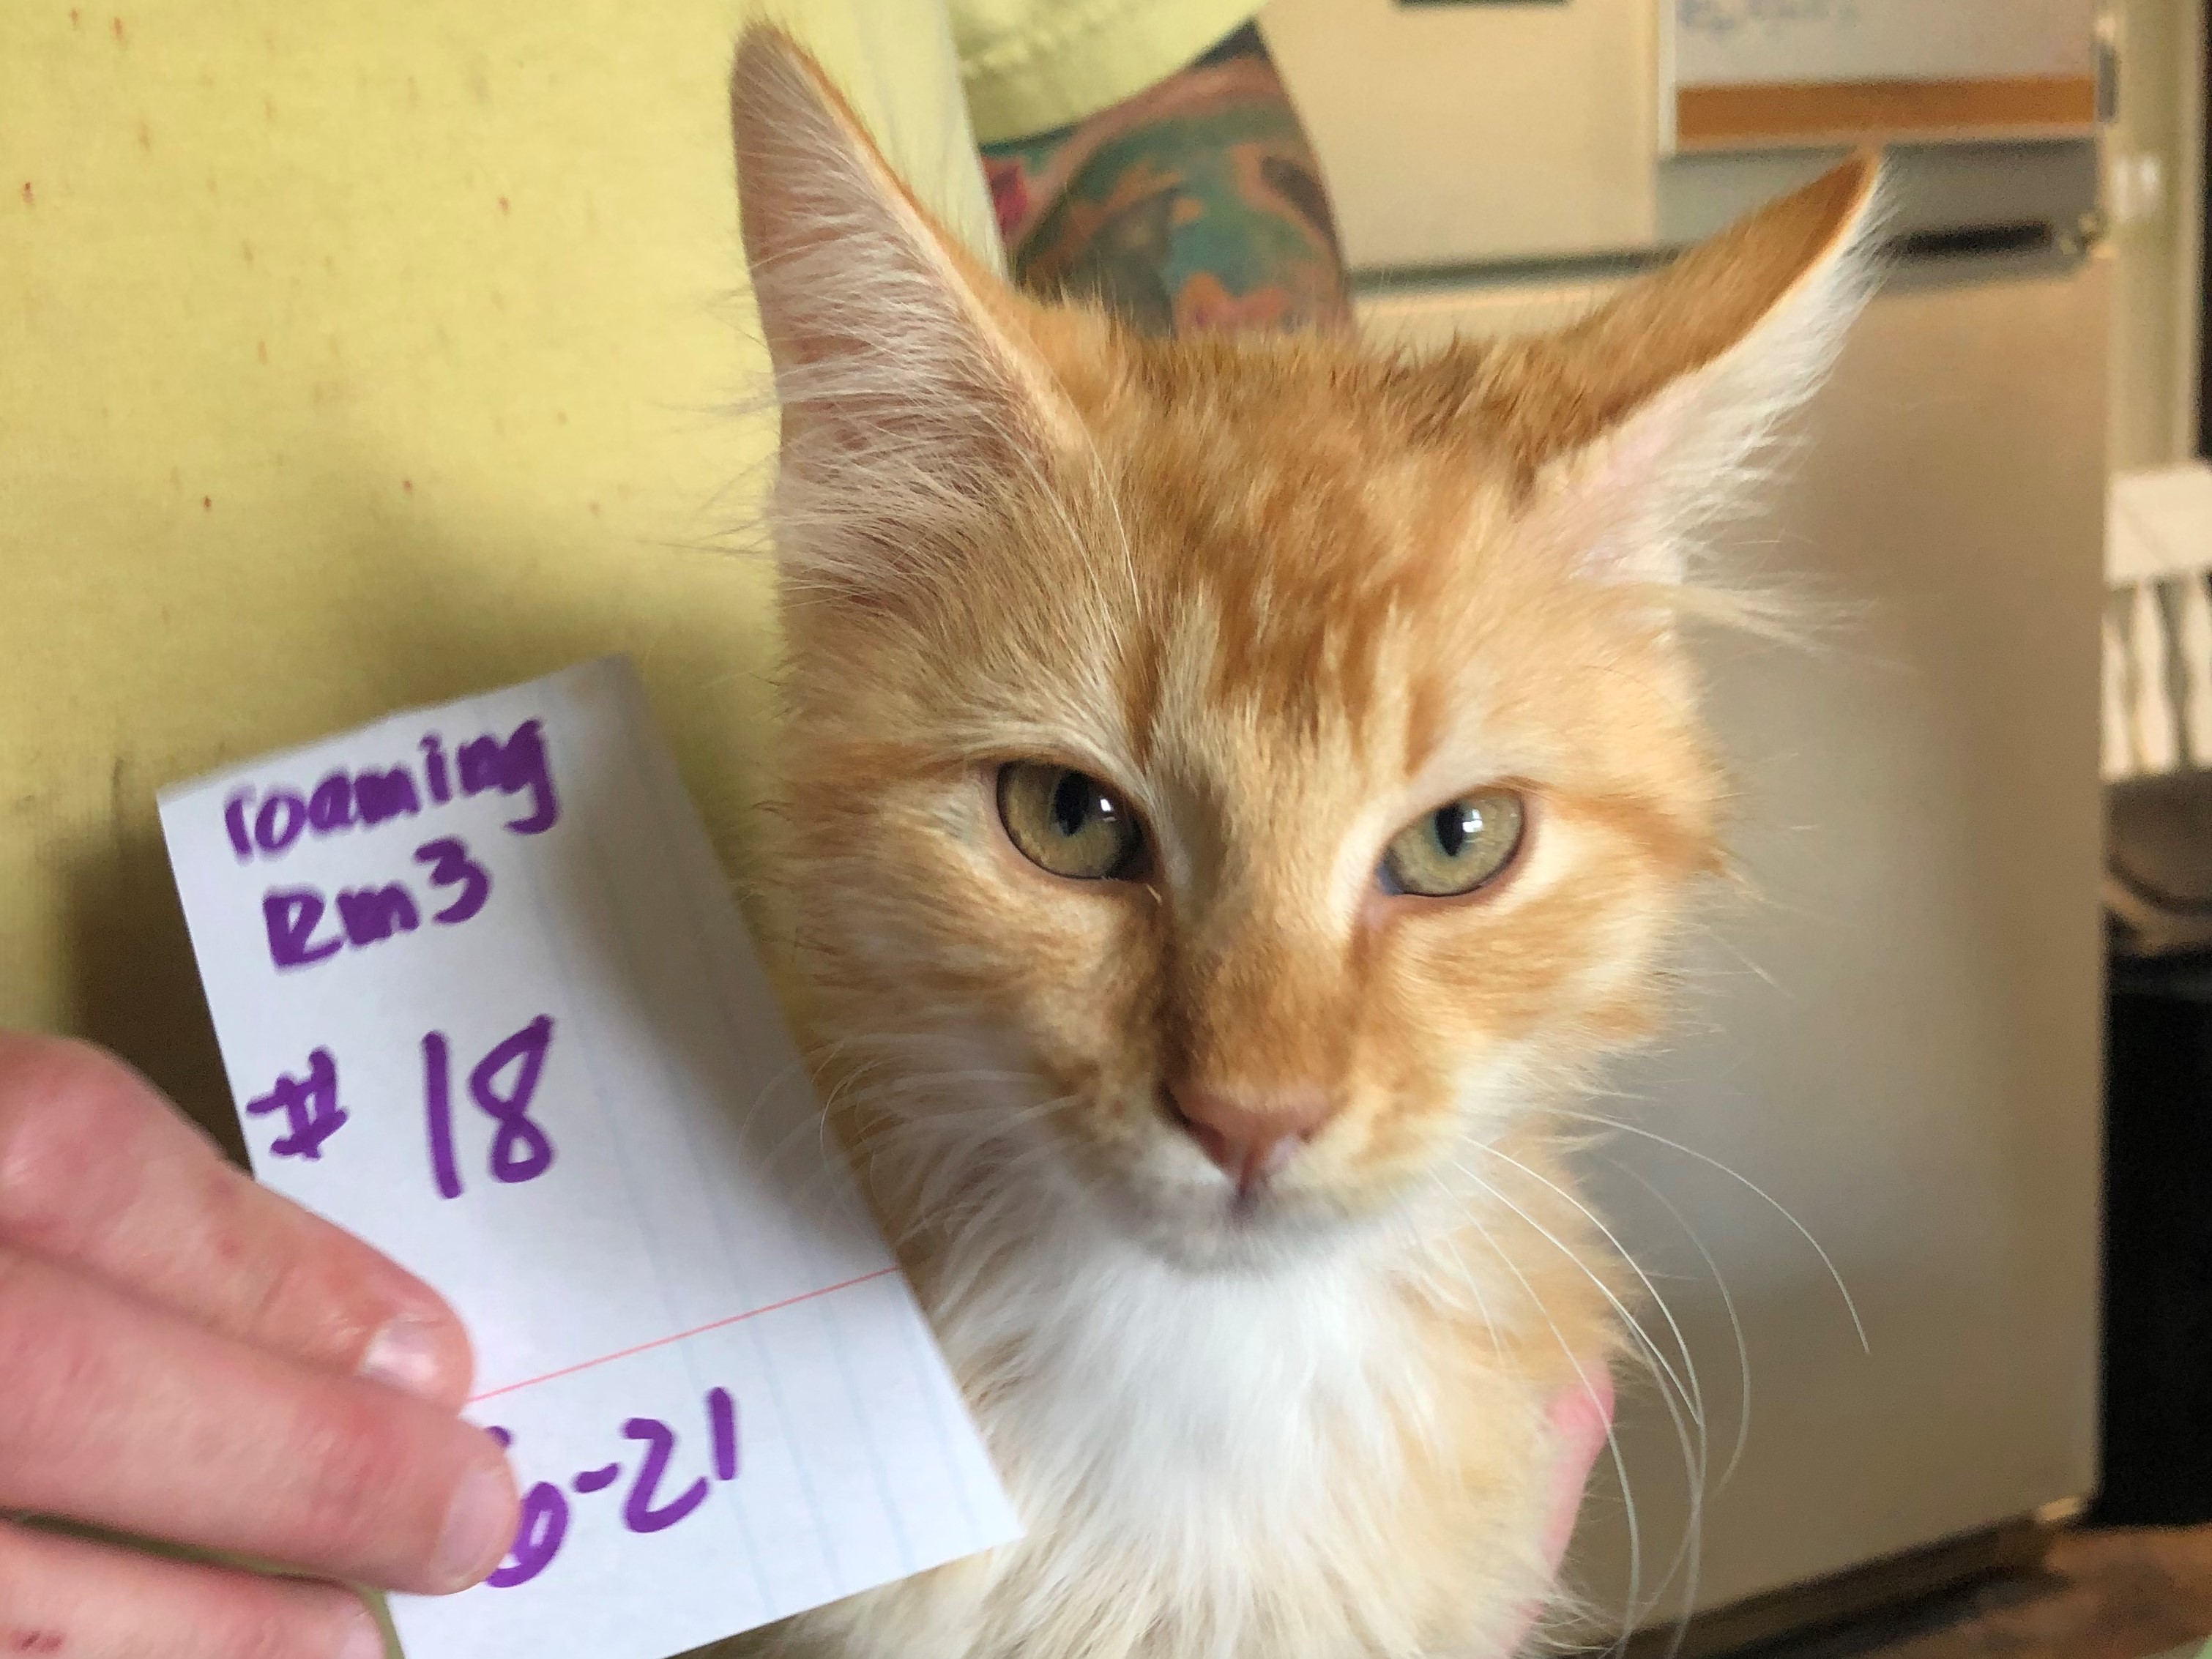 roaming
Rm3
# 18
6-21